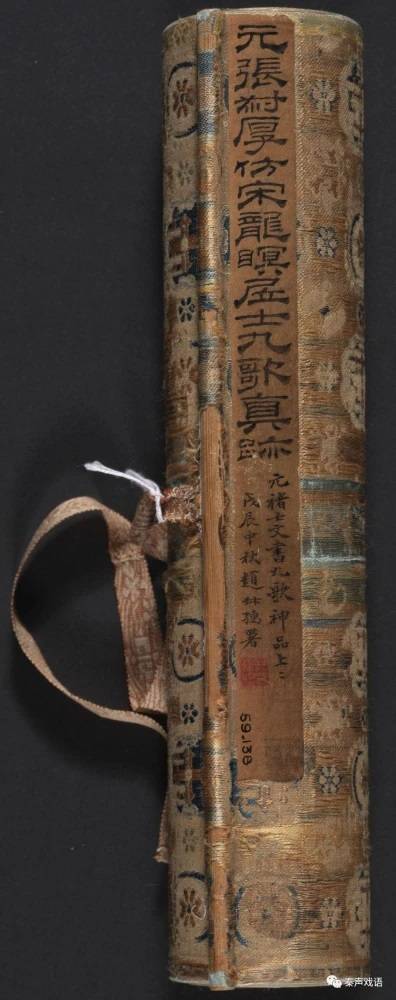 元張叔厚仿宋龍瞑居士九歌真跡
元褚士文書九歌神品上〻
戊辰中秋趙叔孺署
59.138
秦声戏语